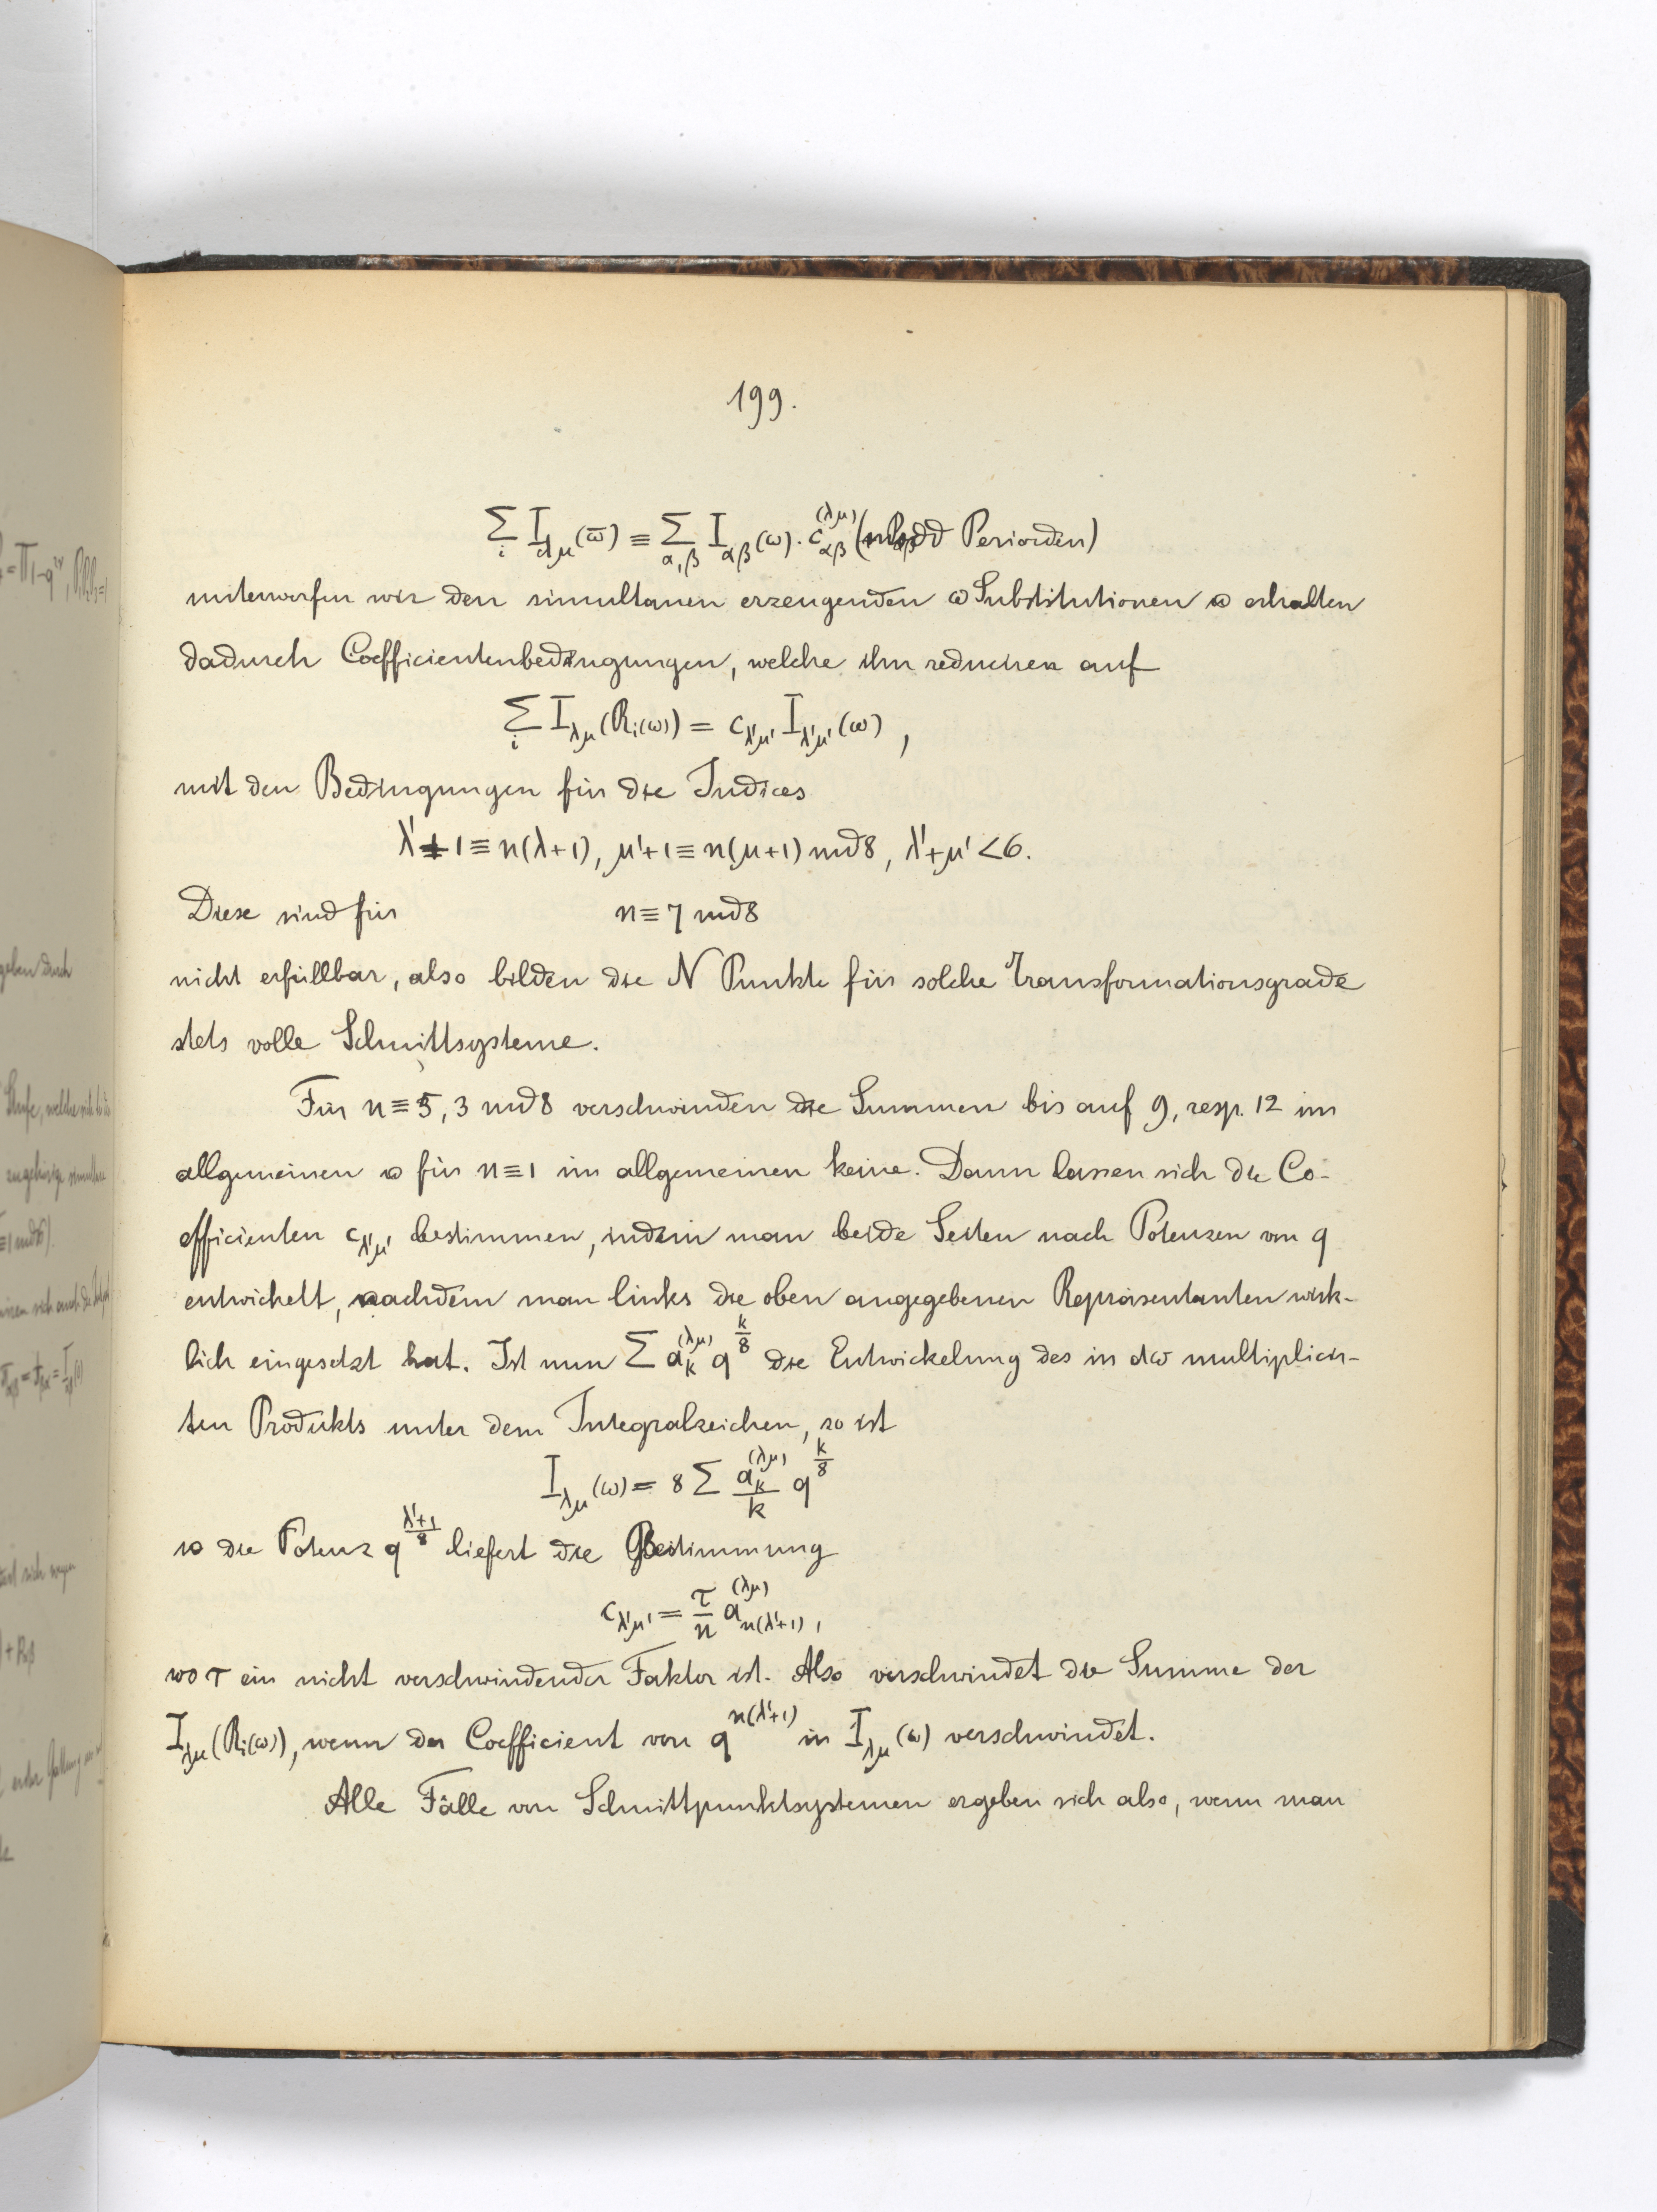 199.
∑_i I_{λμ}(ω̄) ≡ ∑_{α,β} I_{αβ}(ω). c_{αβ}^{(λμ)} (modd Perioden)
unterwerfen wir den simultanen erzeugenden ω Substitutionen u erhalten
dadurch Coefficientenbedingungen, welche ihn reduciren auf
∑_i I_{λμ}(R_i(ω)) = c_{λ'μ'} I_{λ'μ'}(ω) ,
mit den Bedingungen für die Indices
λ'+1 ≡ n(λ+1), μ'+1 ≡ n(μ+1) mod 8, λ'+μ' < 6.
Diese sind für n ≡ 7 mod 8
nicht erfüllbar, also bilden die N Punkte für solche Transformationsgrade
stets volle Schnittsysteme.
Für n ≡ 5, 3 mod 8 verschwinden die Summen bis auf 9, resp. 12 im
allgemeinen u für n ≡ 1 im allgemeinen keine. Dann lassen sich die Co-
efficienten c_{λ'μ'} bestimmen, indem man beide Seiten nach Potenzen von q
entwickelt, nachdem man links die oben angegebenen Repräsentanten wirk-
lich eingesetzt hat. Ist nun ∑ a_k^{(λμ)} q^{k/8} die Entwickelung des in dω multiplicir-
ten Produkts unter dem Integralzeichen, so ist
I_{λμ}(ω) = 8 ∑ a_k^{(λμ)}/k q^{k/8}
u die Potenz q^{(λ'+1)/8} liefert die Bestimmung
c_{λ'μ'} = τ/n a_{n(λ'+1)}^{(λμ)} ,
wo τ ein nicht verschwindender Faktor ist. Also verschwindet die Summe der
I_{λμ}(R_i(ω)), wenn der Coefficient von q^{n(λ'+1)} in I_{λμ}(ω) verschwindet.
Alle Fälle von Schnittpunktsystemen ergeben sich also, wenn man